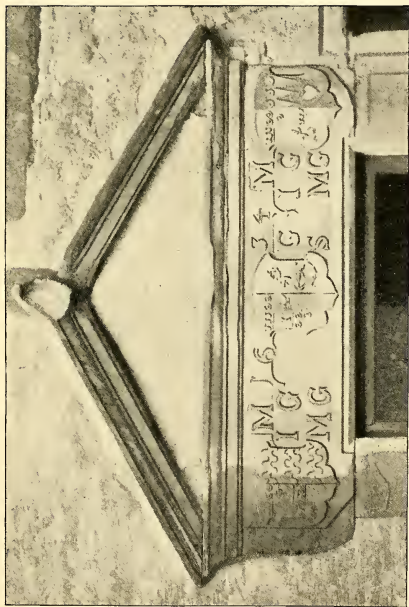 M 16 34 M
IG G IG
MG S MG